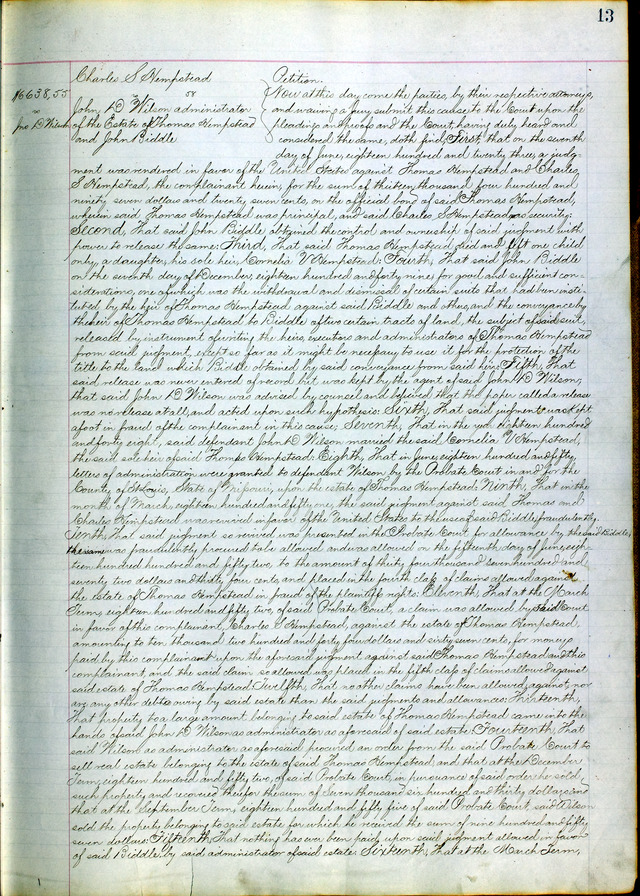 13
Charles S Hempstead Petition.
$6638,55 vs Now at this day come the parties, by their respective attorneys,
John D Wilson administrator and waiving a jury submit this cause to the Court upon the
Jno D Wilson of the Estate of Thomas Hempstead pleadings and proofs and the Court having duly heard and
and John Biddle considered the same, doth find, First, that on the seventh
day of June, eighteen hundred and twenty three, a judg-
ment was rendered in favor of the United States against Thomas Hempstead and Charles
S Hempstead, the complainant herein, for the sum of thirteen thousand, four hundred and
ninety seven dollars and twenty seven cents, on the official bond of said Thomas Hempstead,
wherein said Thomas Hempstead was principal, and said Charles S Hempstead as security:
Second, That said John Biddle obtained the control and ownership of said judgment with
power to release the same: Third, That said Thomas Hempstead died and left one child
only, a daughter, his sole heir, Cornelia V Hempstead: Fourth, That said John Biddle
on the seventh day of December, eighteen hundred and forty nine, for good and sufficient con-
siderations, one of which was the withdrawal and dismissal of certain suits that had been insti-
tuted by the heir of Thomas Hempstead against said Biddle and others, and the conveyance by
the heir of Thomas Hempstead to Biddle of two certain tracts of land, the subject of said suit,
released by instrument of writing the heirs, executors and administrators of Thomas Hempstead
from said judgment, except so far as it might be necessary to use it for the protection of the
title to the land which Biddle obtained by said conveyance from said heir: Fifth, That
said release was never entered of record but was kept by the agent of said John D Wilson;
that said John D Wilson was advised by counsel and believed that the paper called a release
was no release at all, and acted upon such hypothesis: Sixth, That said judgment was kept
afoot in fraud of the complainant in this cause; Seventh, That in the year eighteen hundred
and forty eight, said defendant John D Wilson married the said Cornelia V Hempstead,
the said sole heir of said Thomas Hempstead: Eighth, That in June, eighteen hundred and fifty
letters of administration were granted to defendant Wilson, by the Probate Court in and for the
County of St Louis, State of Missouri, upon the estate of Thomas Hempstead: Ninth, That in the
month of March, eighteen hundred and fifty one, the said judgment against said Thomas and
Charles Hempstead was revived in favor of the United States to the use of said Biddle, fraudulently.
Tenth, That said judgment so revived was presented in the Probate Court for allowance by the said Biddle,
the same was fraudulently procured to be allowed and was allowed on the fifteenth day of June, eigh-
teen hundred and fifty two, to the amount of thirty four thousand seven hundred and
seventy two dollars and thirty four cents, and placed in the fourth class of claims allowed against
the estate of Thomas Hempstead in fraud of the plaintiffs rights: Eleventh, That at the March
Term, eighteen hundred and fifty two, of said Probate Court, a claim was allowed by said Court
in favor of this complainant, Charles S Hempstead, against the estate of Thomas Hempstead,
amounting to ten thousand two hundred and forty four dollars and sixty seven cents, for moneys
paid by this complainant upon the aforesaid judgment against said Thomas Hempstead and this
complainant, and the said claim so allowed was placed in the fifth class of claims allowed against
said estate of Thomas Hempstead: Twelfth, That no other claims have been allowed against, nor
are any other debts owing by said estate than the said judgments and allowances: Thirteenth,
That property to a large amount belonging to said estate of Thomas Hempstead came into the
hands of said John D Wilson as administrator as aforesaid of said estate: Fourteenth, That
said Wilson as administrator as aforesaid procured an order from the said Probate Court to
sell real estate belonging to the estate of said Thomas Hempstead and that at the December
Term, eighteen hundred and fifty two, of said Probate Court, in pursuance of said order he sold
such property, and recovered therefor the sum of Seven thousand six hundred and thirty dollars, and
that at the September Term, eighteen hundred and fifty five of said Probate Court, said Wilson
sold the property belonging to said estate for which he received the sum of nine hundred and fifty
seven dollars: Fifteenth, That nothing has ever been paid upon said judgment allowed in favor
of said Biddle by said administrator of said estate: Sixteenth, That at the March Term,